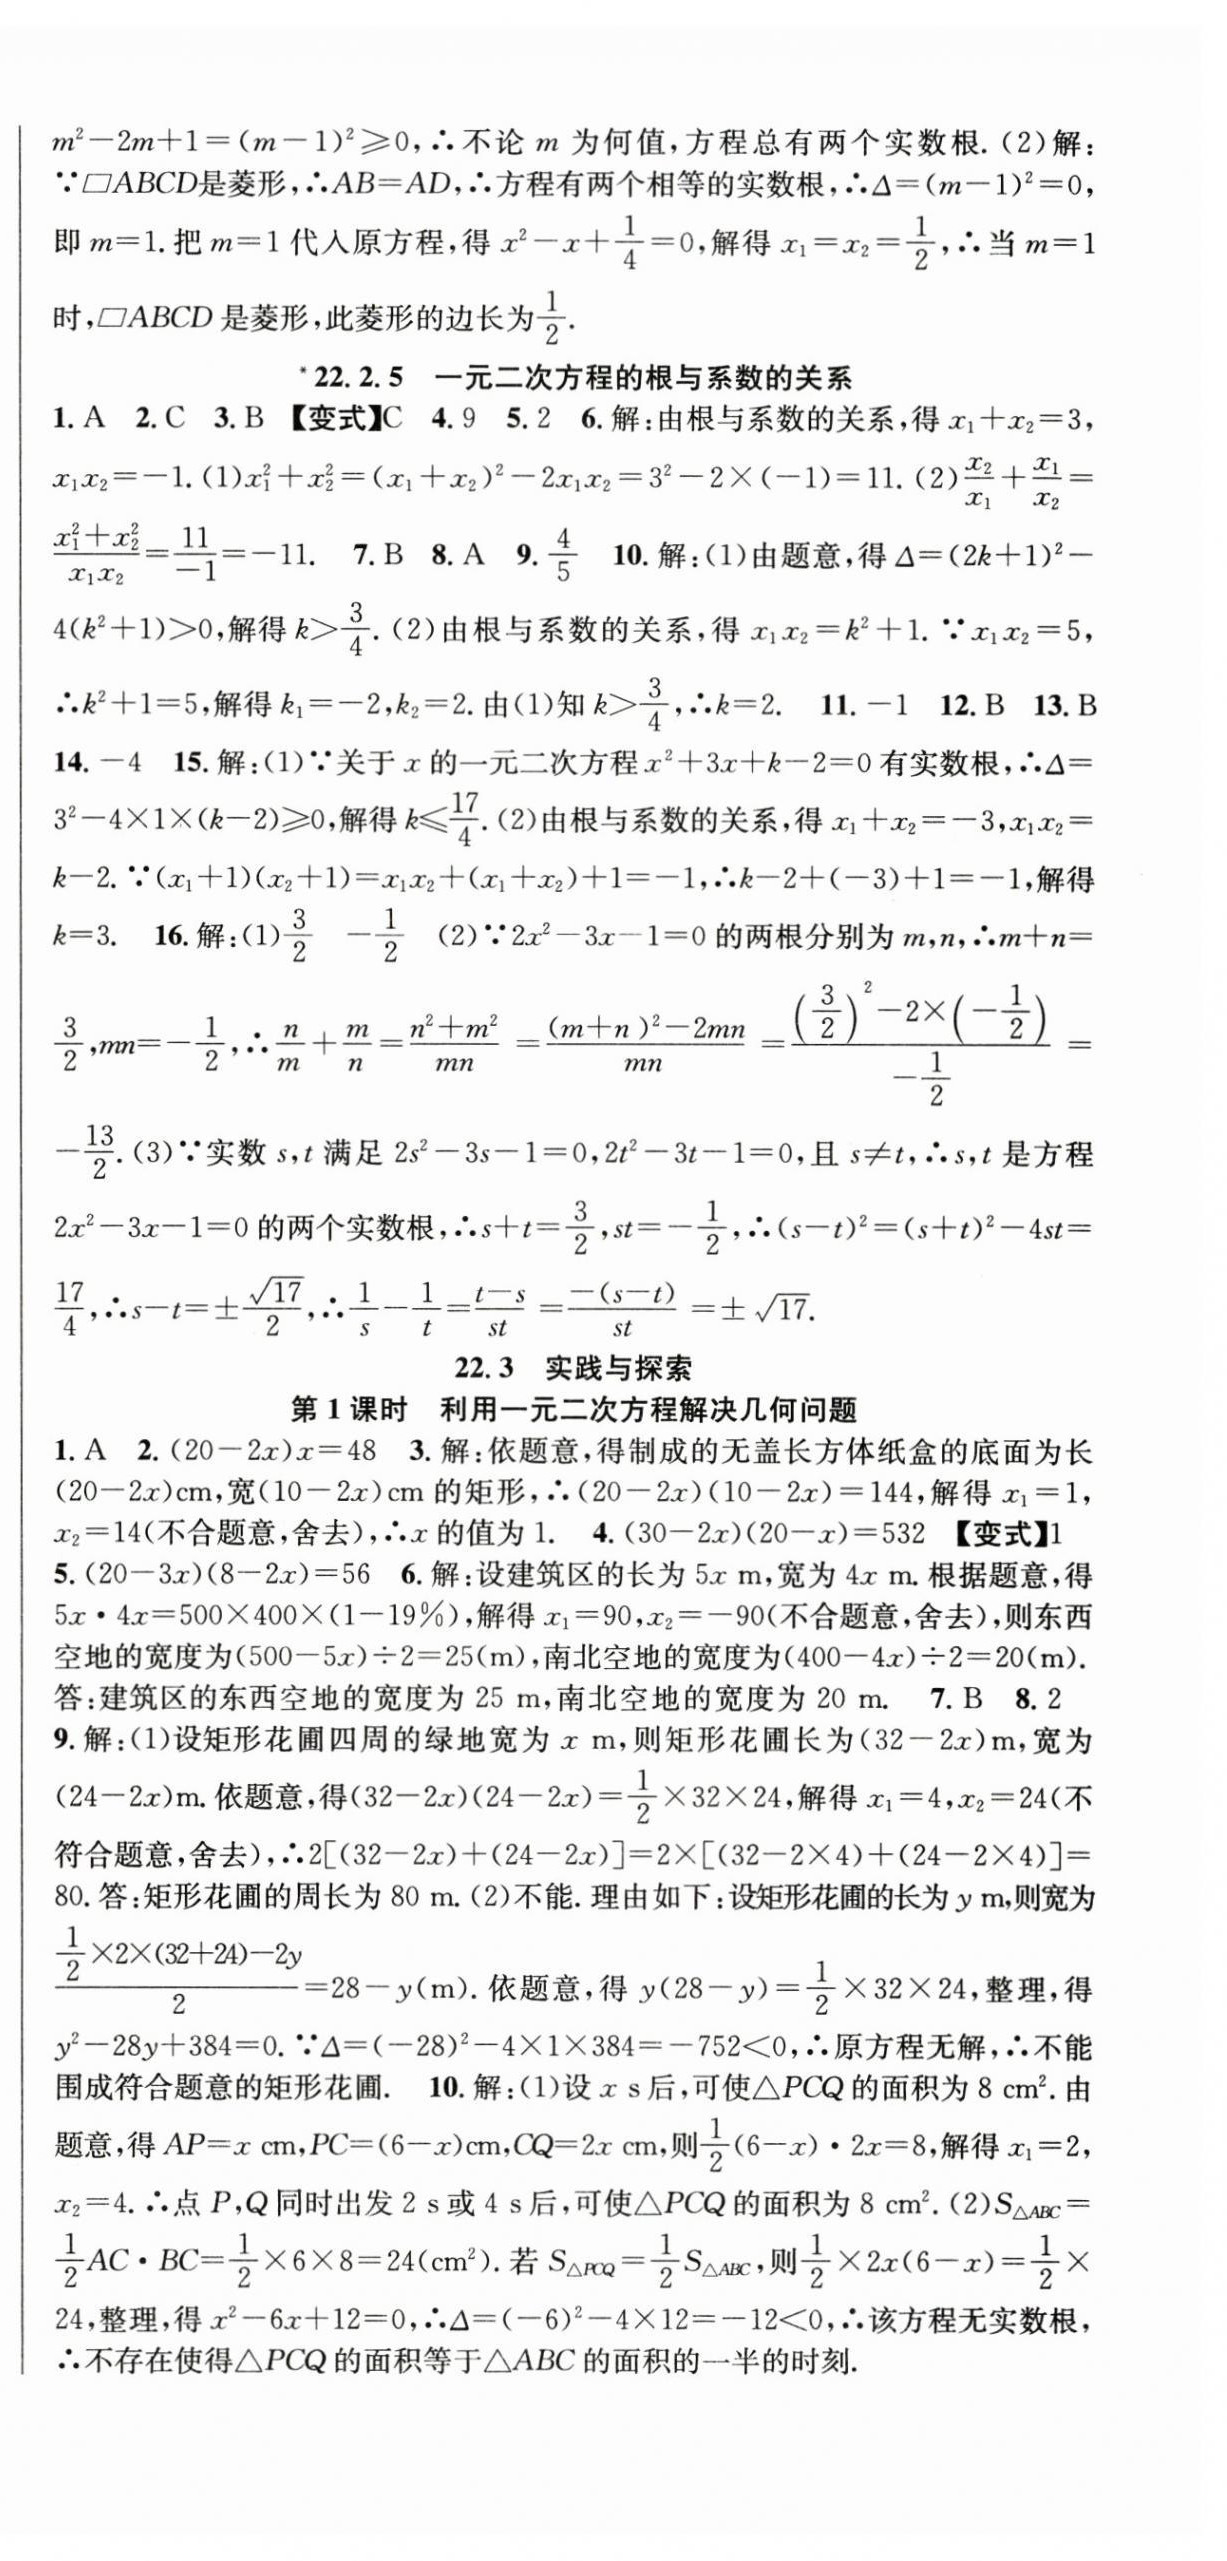 m²－2m＋1＝(m－1)²≥0,∴不论 m 为何值,方程总有两个实数根. (2)解:
∵▱ABCD是菱形,∴AB＝AD,∴方程有两个相等的实数根,∴Δ＝(m－1)²＝0,
即 m＝1. 把 m＝1 代入原方程,得 x²－x＋1/4＝0,解得 x₁＝x₂＝1/2,∴当 m＝1
时,▱ABCD 是菱形,此菱形的边长为1/2.
*22.2.5 一元二次方程的根与系数的关系
1. A 2. C 3. B 【变式】C 4. 9 5. 2 6. 解:由根与系数的关系,得 x₁＋x₂＝3,
x₁x₂＝－1. (1)x₁²＋x₂²＝(x₁＋x₂)²－2x₁x₂＝3²－2×(－1)＝11. (2)x₂/x₁＋x₁/x₂＝
(x₁²＋x₂²)/(x₁x₂)＝11/(－1)＝－11. 7. B 8. A 9. 4/5 10. 解:(1)由题意,得 Δ＝(2k＋1)²－
4(k²＋1)＞0,解得 k＞3/4. (2)由根与系数的关系,得 x₁x₂＝k²＋1. ∵x₁x₂＝5,
∴k²＋1＝5,解得 k₁＝－2,k₂＝2. 由(1)知 k＞3/4,∴k＝2. 11. －1 12. B 13. B
14. －4 15. 解:(1)∵关于 x 的一元二次方程 x²＋3x＋k－2＝0 有实数根,∴Δ＝
3²－4×1×(k－2)≥0,解得 k≤17/4. (2)由根与系数的关系,得 x₁＋x₂＝－3,x₁x₂＝
k－2. ∵(x₁＋1)(x₂＋1)＝x₁x₂＋(x₁＋x₂)＋1＝－1,∴k－2＋(－3)＋1＝－1,解得
k＝3. 16. 解:(1)3/2 －1/2 (2)∵2x²－3x－1＝0 的两根分别为 m,n,∴m＋n＝
3/2,mn＝－1/2,∴n/m＋m/n＝(n²＋m²)/mn＝((m＋n)²－2mn)/mn＝((3/2)²－2×(－1/2))/(－1/2)＝
－13/2. (3)∵实数 s,t 满足 2s²－3s－1＝0,2t²－3t－1＝0,且 s≠t,∴s,t 是方程
2x²－3x－1＝0 的两个实数根,∴s＋t＝3/2,st＝－1/2,∴(s－t)²＝(s＋t)²－4st＝
17/4,∴s－t＝±√17/2,∴1/s－1/t＝(t－s)/st＝－(s－t)/st＝±√17.
22.3 实践与探索
第 1 课时 利用一元二次方程解决几何问题
1. A 2. (20－2x)x＝48 3. 解:依题意,得制成的无盖长方体纸盒的底面为长
(20－2x)cm,宽(10－2x)cm 的矩形,∴(20－2x)(10－2x)＝144,解得 x₁＝1,
x₂＝14(不合题意,舍去),∴x 的值为 1. 4. (30－2x)(20－x)＝532 【变式】1
5. (20－3x)(8－2x)＝56 6. 解:设建筑区的长为 5x m,宽为 4x m. 根据题意,得
5x·4x＝500×400×(1－19%),解得 x₁＝90,x₂＝－90(不合题意,舍去),则东西
空地的宽度为(500－5x)÷2＝25(m),南北空地的宽度为(400－4x)÷2＝20(m).
答:建筑区的东西空地的宽度为 25 m,南北空地的宽度为 20 m. 7. B 8. 2
9. 解:(1)设矩形花圃四周的绿地宽为 x m,则矩形花圃长为(32－2x)m,宽为
(24－2x)m. 依题意,得(32－2x)(24－2x)＝1/2×32×24,解得 x₁＝4,x₂＝24(不
符合题意,舍去),∴2[(32－2x)＋(24－2x)]＝2×[(32－2×4)＋(24－2×4)]＝
80. 答:矩形花圃的周长为 80 m. (2)不能. 理由如下:设矩形花圃的长为 y m,则宽为
(1/2×2×(32＋24)－2y)/2＝28－y(m). 依题意,得 y(28－y)＝1/2×32×24,整理,得
y²－28y＋384＝0. ∵Δ＝(－28)²－4×1×384＝－752＜0,∴原方程无解,∴不能
围成符合题意的矩形花圃. 10. 解:(1)设 x s 后,可使△PCQ 的面积为 8 cm². 由
题意,得 AP＝x cm,PC＝(6－x)cm,CQ＝2x cm,则1/2(6－x)·2x＝8,解得 x₁＝2,
x₂＝4. ∴点 P,Q 同时出发 2 s 或 4 s 后,可使△PCQ 的面积为 8 cm². (2)S△ABC＝
1/2AC·BC＝1/2×6×8＝24(cm²). 若 S△PCQ＝1/2S△ABC,则1/2×2x(6－x)＝1/2×
24,整理,得 x²－6x＋12＝0,∴Δ＝(－6)²－4×12＝－12＜0,∴该方程无实数根,
∴不存在使得△PCQ 的面积等于△ABC 的面积的一半的时刻.